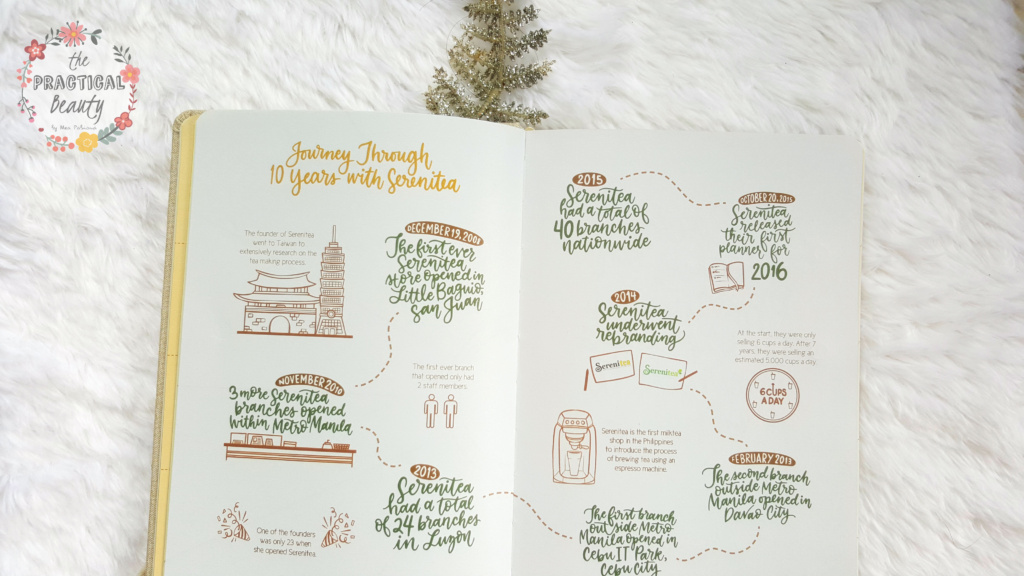 the
PRACTICAL
Beauty
Journey Through
10 Years with Serenitea
The founder of Serenitea
went to Taiwan to
extensively research on the
tea making process.
DECEMBER 19, 2008
The first ever
Serenitea
store opened in
Little Baguio,
San Juan
The first ever branch
that opened only had
2 staff members.
NOVEMBER 2010
3 more Serenitea
branches opened
within Metro Manila
2013
Serenitea
had a total
of 24 branches
in Luzon
One of the founders
was only 23 when
she opened Serenitea.
2015
Serenitea
had a total of
40 branches
nationwide
OCTOBER 20, 2015
Serenitea
released
their first
planner for
2016
2014
Serenitea
underwent
rebranding
Serenitea
Serenitea
At the start, they were only
selling 6 cups a day. After 7
years, they were selling an
estimated 5,000 cups a day.
6 CUPS
A DAY
Serenitea is the first milktea
shop in the Philippines
to introduce the process
of brewing tea using an
espresso machine.
FEBRUARY 2013
The second branch
outside Metro
Manila opened in
Davao City
The first branch
outside Metro
Manila opened in
Cebu IT Park,
Cebu City